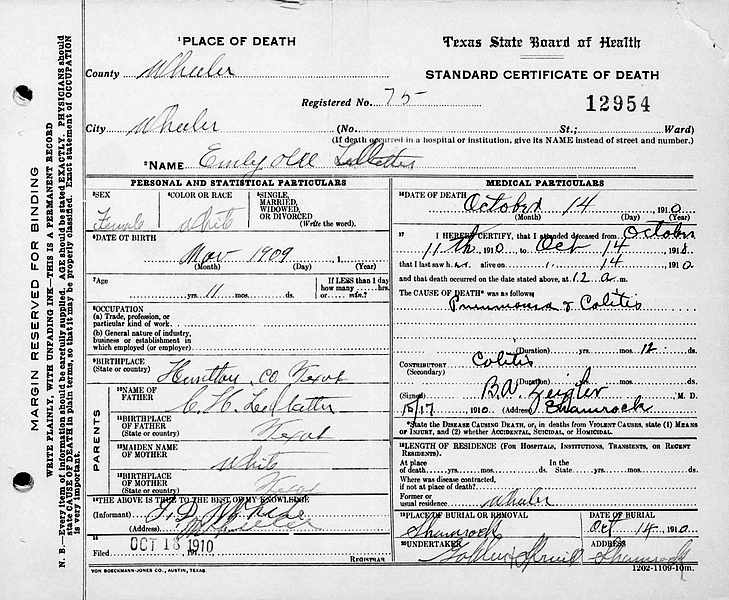 MARGIN RESERVED FOR BINDING
WRITE PLAINLY, WITH UNFADING INK—THIS IS A PERMANENT RECORD
N. B.—Every item of information should be carefully supplied. AGE should be stated EXACTLY. PHYSICIANS should
state CAUSE OF DEATH in plain terms, so that it may be properly classified. Exact statement of OCCUPATION
is very important.
1PLACE OF DEATH
County Wheeler
City Wheeler
Texas State Board of Health
STANDARD CERTIFICATE OF DEATH
Registered No. 75
12954
(No. St.; Ward)
(If death occurred in a hospital or institution, give its NAME instead of street and number.)
2NAME Emily
PERSONAL AND STATISTICAL PARTICULARS
3SEX
Female
4COLOR OR RACE
White
5SINGLE,
MARRIED,
WIDOWED,
OR DIVORCED
(Write the word).
6DATE OF BIRTH
Nov 1909 , 1
(Month) (Day) (Year)
7Age
yrs. 11 mos. ds.
If LESS than 1 day
how many hrs.
or min.?
8OCCUPATION
(a) Trade, profession, or
particular kind of work.
(b) General nature of industry,
business or establishment in
which employed (or employer)
9BIRTHPLACE
(State or country) Co Texas
PARENTS
10NAME OF
FATHER
C. H. Ledbetter
11BIRTHPLACE
OF FATHER
(State or country) Texas
12MAIDEN NAME
OF MOTHER
White
13BIRTHPLACE
OF MOTHER
(State or country) Texas
14THE ABOVE IS TRUE TO THE BEST OF MY KNOWLEDGE
(Informant)
(Address) Wheeler
15
Filed OCT 18 1910 , 191
REGISTRAR
VON BOECKMANN-JONES CO., AUSTIN, TEXAS.
MEDICAL PARTICULARS
16DATE OF DEATH
October 14 , 1910
(Month) (Day) (Year)
17 I HEREBY CERTIFY, that I attended deceased from October
11th 1910 to Oct 14 1910
that I last saw h alive on 14 1910
and that death occurred on the date stated above, at 12 a m.
The CAUSE OF DEATH* was as follows:
Pneumonia & Colitis
(Duration) yrs. mos. 12 ds.
CONTRIBUTORY Colitis
(Secondary)
(Duration) yrs. mos. ds.
(Signed) Zeigler M. D.
1910 (Address) Shamrock
*State the DISEASE CAUSING DEATH, or, in deaths from VIOLENT CAUSES, state (1) MEANS
OF INJURY, and (2) whether ACCIDENTAL, SUICIDAL, or HOMICIDAL.
18LENGTH OF RESIDENCE (FOR HOSPITALS, INSTITUTIONS, TRANSIENTS, OR RECENT
RESIDENTS).
At place In the
of death yrs. mos. ds. State yrs. mos. ds.
Where was disease contracted,
if not at place of death?
Former or
usual residence Wheeler
19PLACE OF BURIAL OR REMOVAL
Shamrock
DATE OF BURIAL
Oct 14 1910
20UNDERTAKER
ADDRESS
Shamrock
1202-1109-10m.